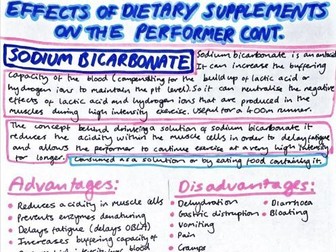 EFFECTS OF DIETARY SUPPLEMENTS
ON THE PERFORMER CONT.
SODIUM BICARBONATE
Sodium bicarbonate is an antacid
It can increase the buffering
capacity of the blood (compensating for the build up of lactic acid or
hydrogen ions to maintain the pH level). So it can neutralise the negative
effects of lactic acid and hydrogen ions that are produced in the
muscles during high intensity exercise. Useful for a 400m runner.
The concept behind drinking a solution of sodium bicarbonate it
reduces the acidity within the muscle cells in order to delay fatigue
and allows the performer to continue exercise at a very high intensity
for longer. Consumed as a solution or by eating food containing it.
Advantages:
• Reduces acidity in muscle cells
• Prevents enzymes denaturing
• Delays fatigue (delays OBLA)
• Increases buffering capacity of
Disadvantages:
• Dehydration
• Gastric disruption
• Vomiting
• Pain
• Cramps
• Diarrhoea
• Bloating